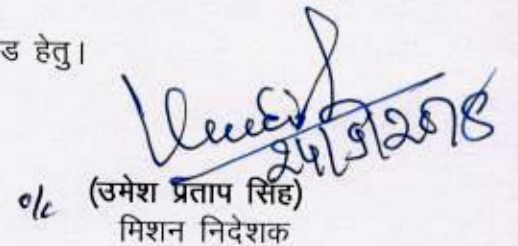 ड हेतु।
24/9/2018
o/c (उमेश प्रताप सिंह)
मिशन निदेशक